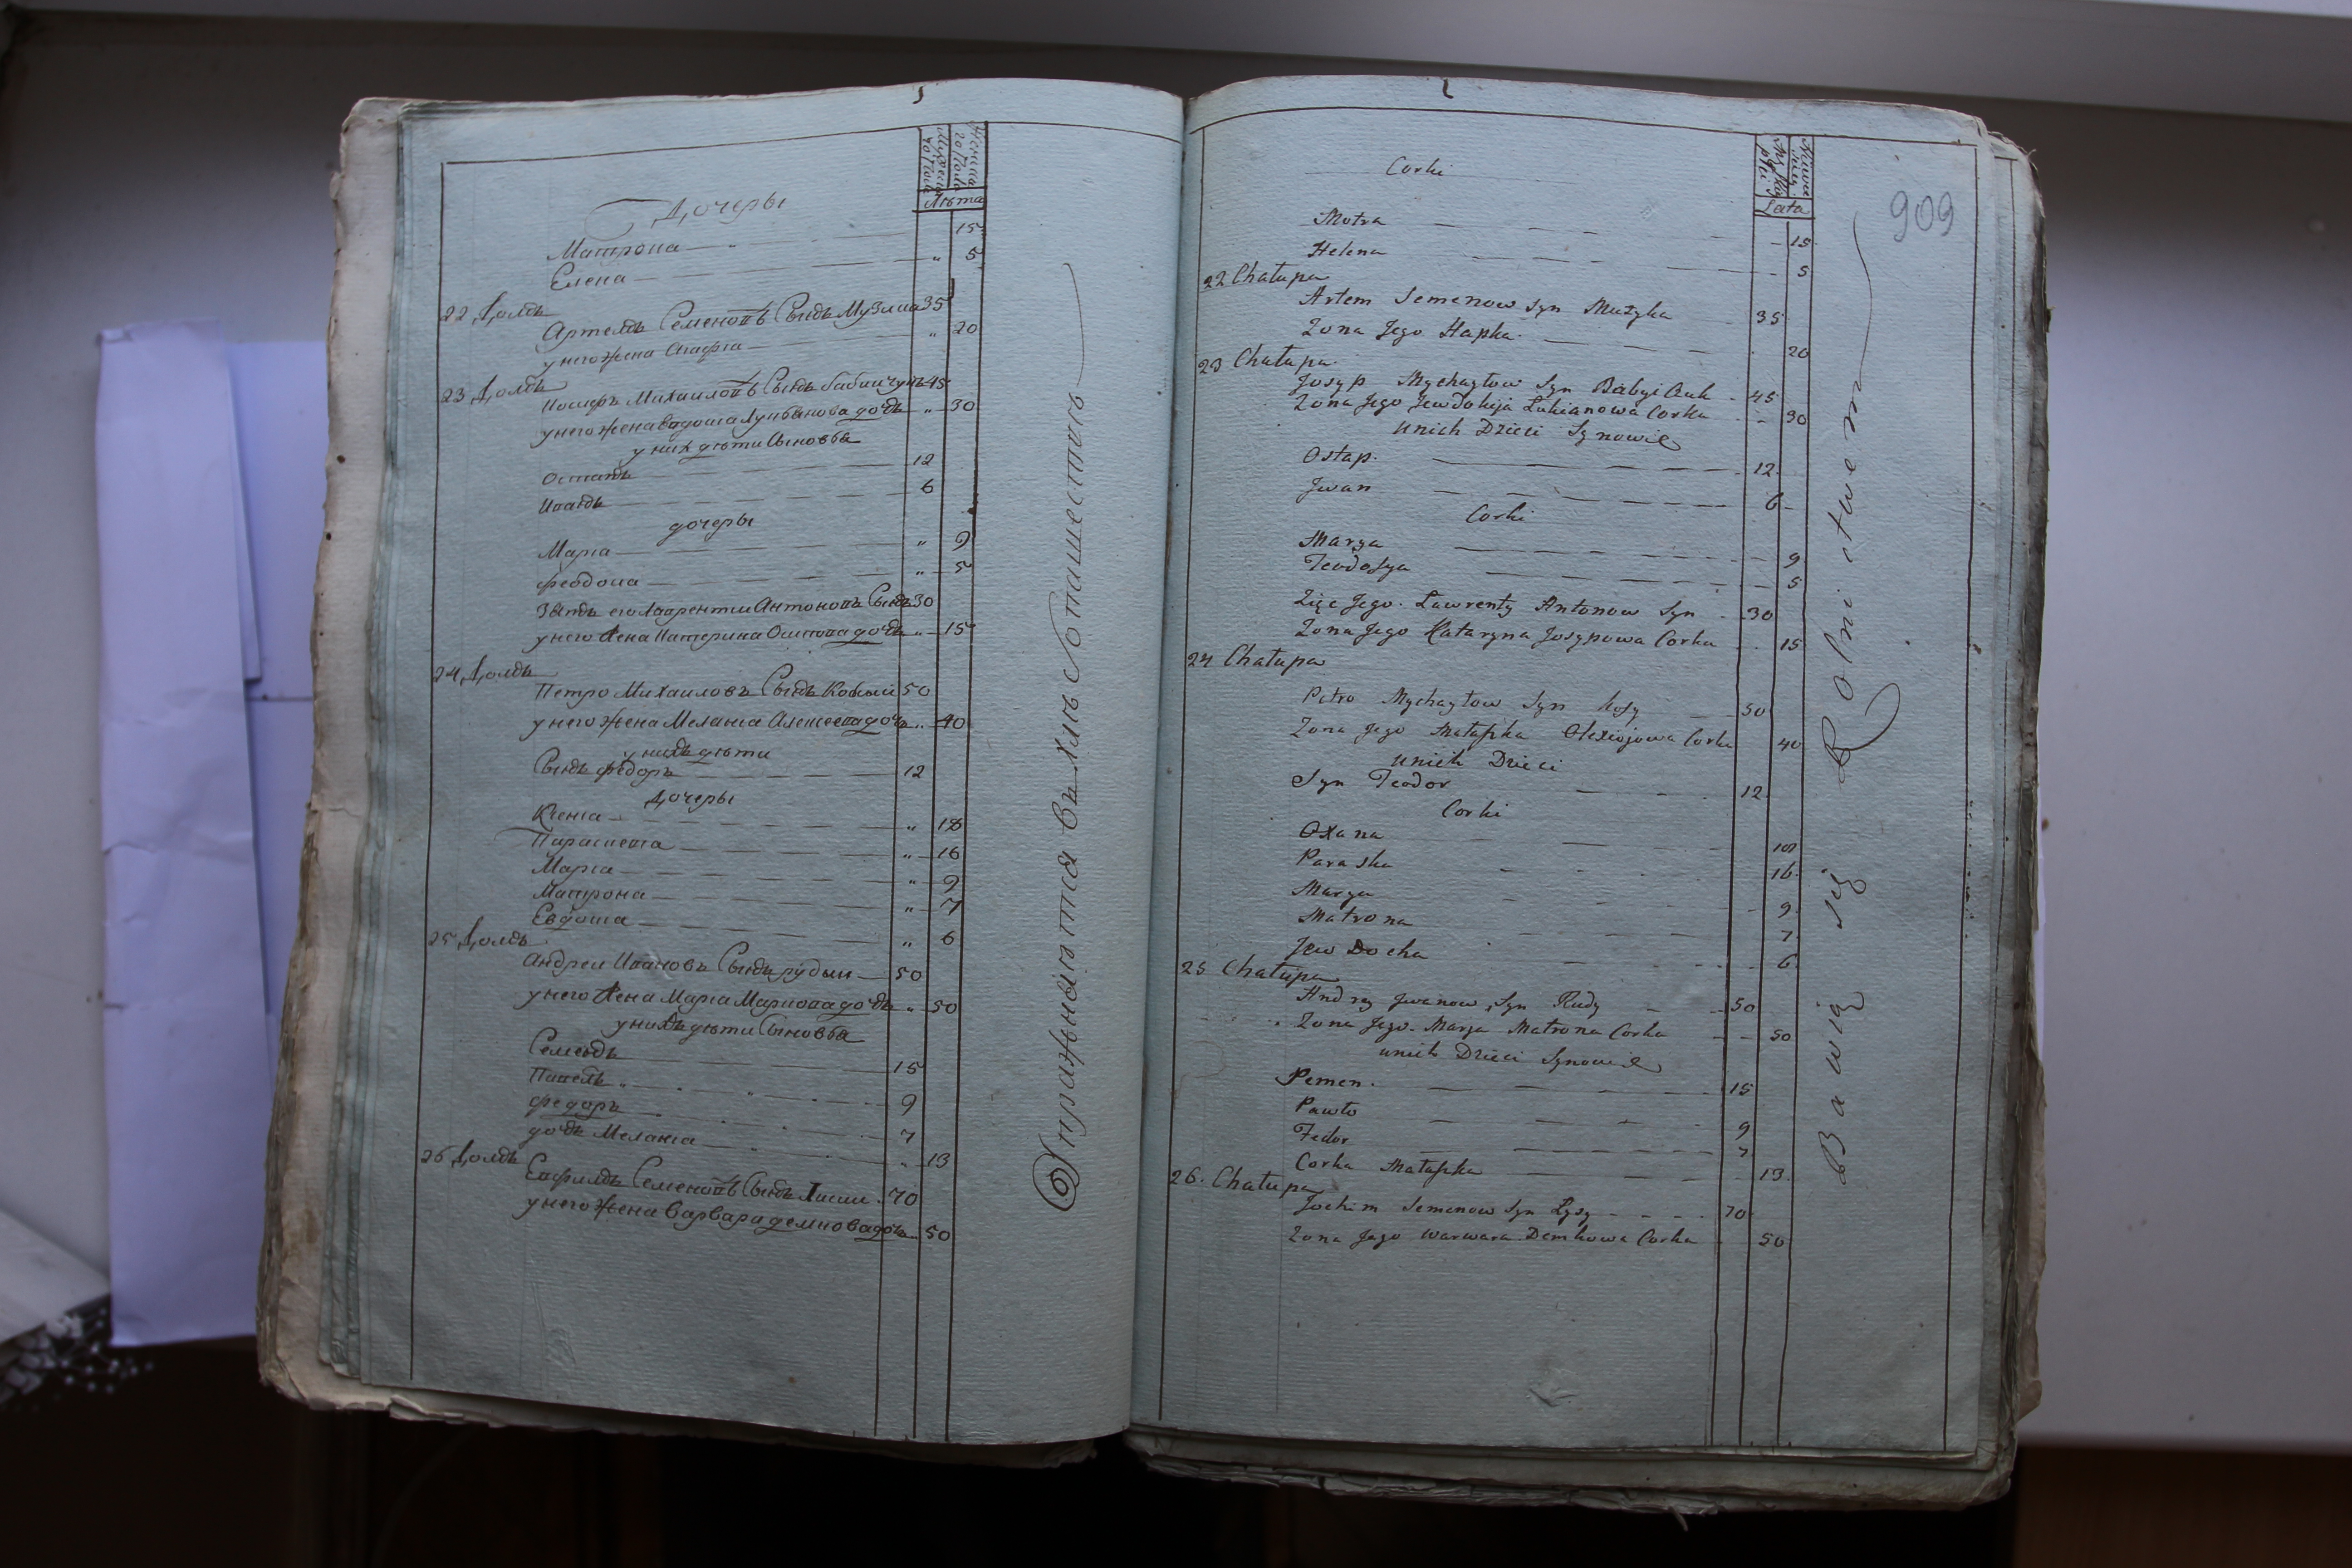 Дочеры
Лѣта
Матрона 15
Елена " 5
22 Домъ
Артемъ Семеновъ Сынъ Музыка 35
у него жена Агафиа " 20
23 Домъ
Иосифъ Михаиловъ Сынъ бабии чукъ 45
у него жена Евдокиа Лукьянова дочь " 30
у них дѣти Сыновья
Остапъ 12
Иванъ 6
дочеры
Мариа " 9
Феодосиа " 5
Зять его Лаврентии Антоновъ Сынъ 30
у него жена Катерина Осипова дочь " 15
24 Домъ
Петро Михаиловъ Сынъ Косыи 50
у него жена Меланиа Алексеева дочь " 40
у нихъ дѣти
Сынъ Федоръ 12
Дочеры
Ксениа " 18
Параскева " 16
Мариа " 9
Матрона " 7
Евдокиа " 6
25 Домъ
Андреи Ивановъ Сынъ рудыи 50
у него жена Мариа дочь " 50
у нихъ дѣти Сыновья
Семенъ 15
Павелъ 9
Федоръ 7
дочь Меланиа " 13
26 Домъ
Ефимъ Семеновъ Сынъ Лисии 70
у него жена Варвара демкова дочь 50
Упражняются въ хлѣбопашествѣ
909
Corki
Lata
Motra 15
Helena 5
22 Chałupa
Artem Semenow Syn Muzyka 35
Zona Jego Hapka 20
23 Chałupa
Josyp Mychayłow Syn Babyi Cuk 45
Zona Jego Jewdokija Lukianowa Corka 30
unich Dzieci Synowie
Ostap 12
Jwan 6
Corki
Marya 9
Teodosya 5
Zięc Jego Lawrenty Antonow Syn 30
Zona Jego Kataryna Josypowa Corka 15
24 Chałupa
Petro Mychayłow Syn Kosy 50
Zona Jego Małaszka Olexiojowa Corka 40
unich Dzieci
Syn Teodor 12
Corki
Oxana 18
Paraska 16
Marya 9
Matrona 7
Jew Docha 6
25 Chałupa
Andrey Jwanow Syn Rudy 50
Zona Jego Marya Matrona Corka 50
unich Dzieci Synowie
Semen 15
Pawło 9
Fedor 7
Corka Małaszka 13
26. Chałupa
Jochim Semenow Syn Łysy 70
Zona Jego Warwara Demkowa Corka 50
Bawią się Rolnictwem